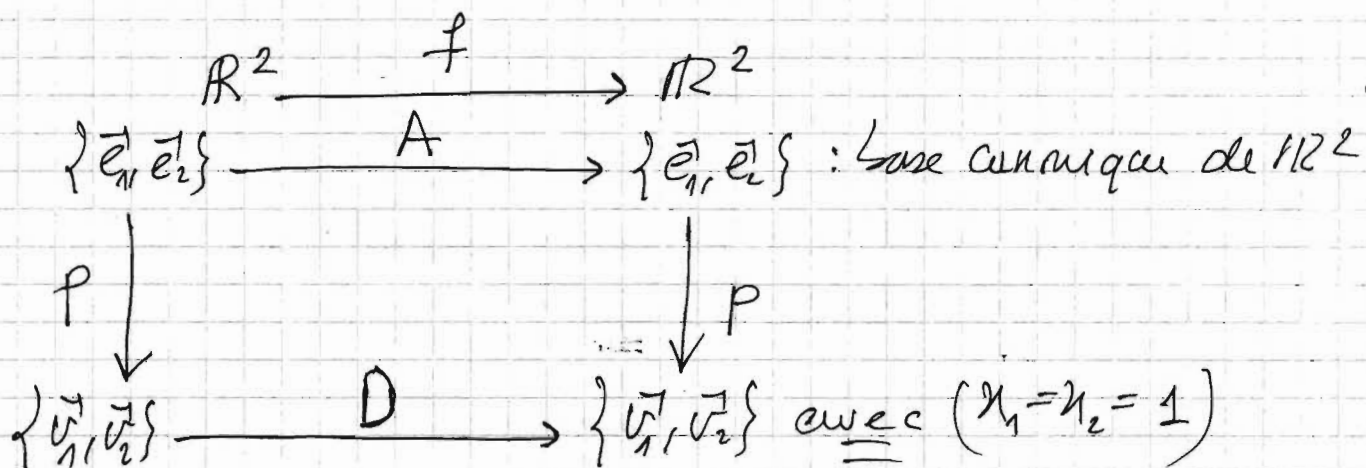 f
ℝ² → ℝ²
A
{e⃗₁, e⃗₂} → {e⃗₁, e⃗₂} : base canonique de ℝ²
P P
D
{v⃗₁, v⃗₂} → {v⃗₁, v⃗₂} avec (x₁ = x₂ = 1)